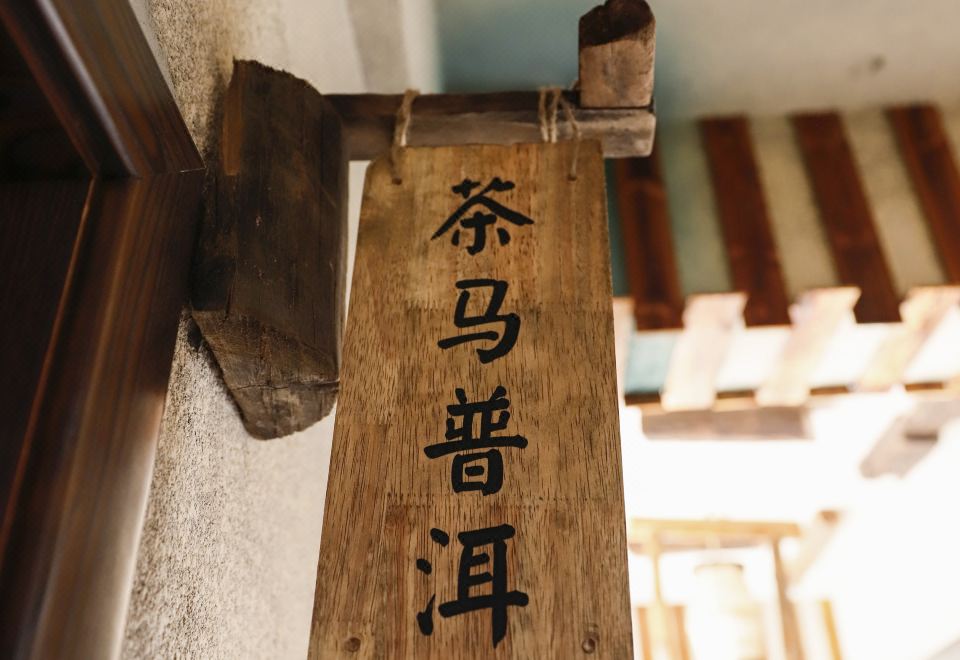 茶马普洱